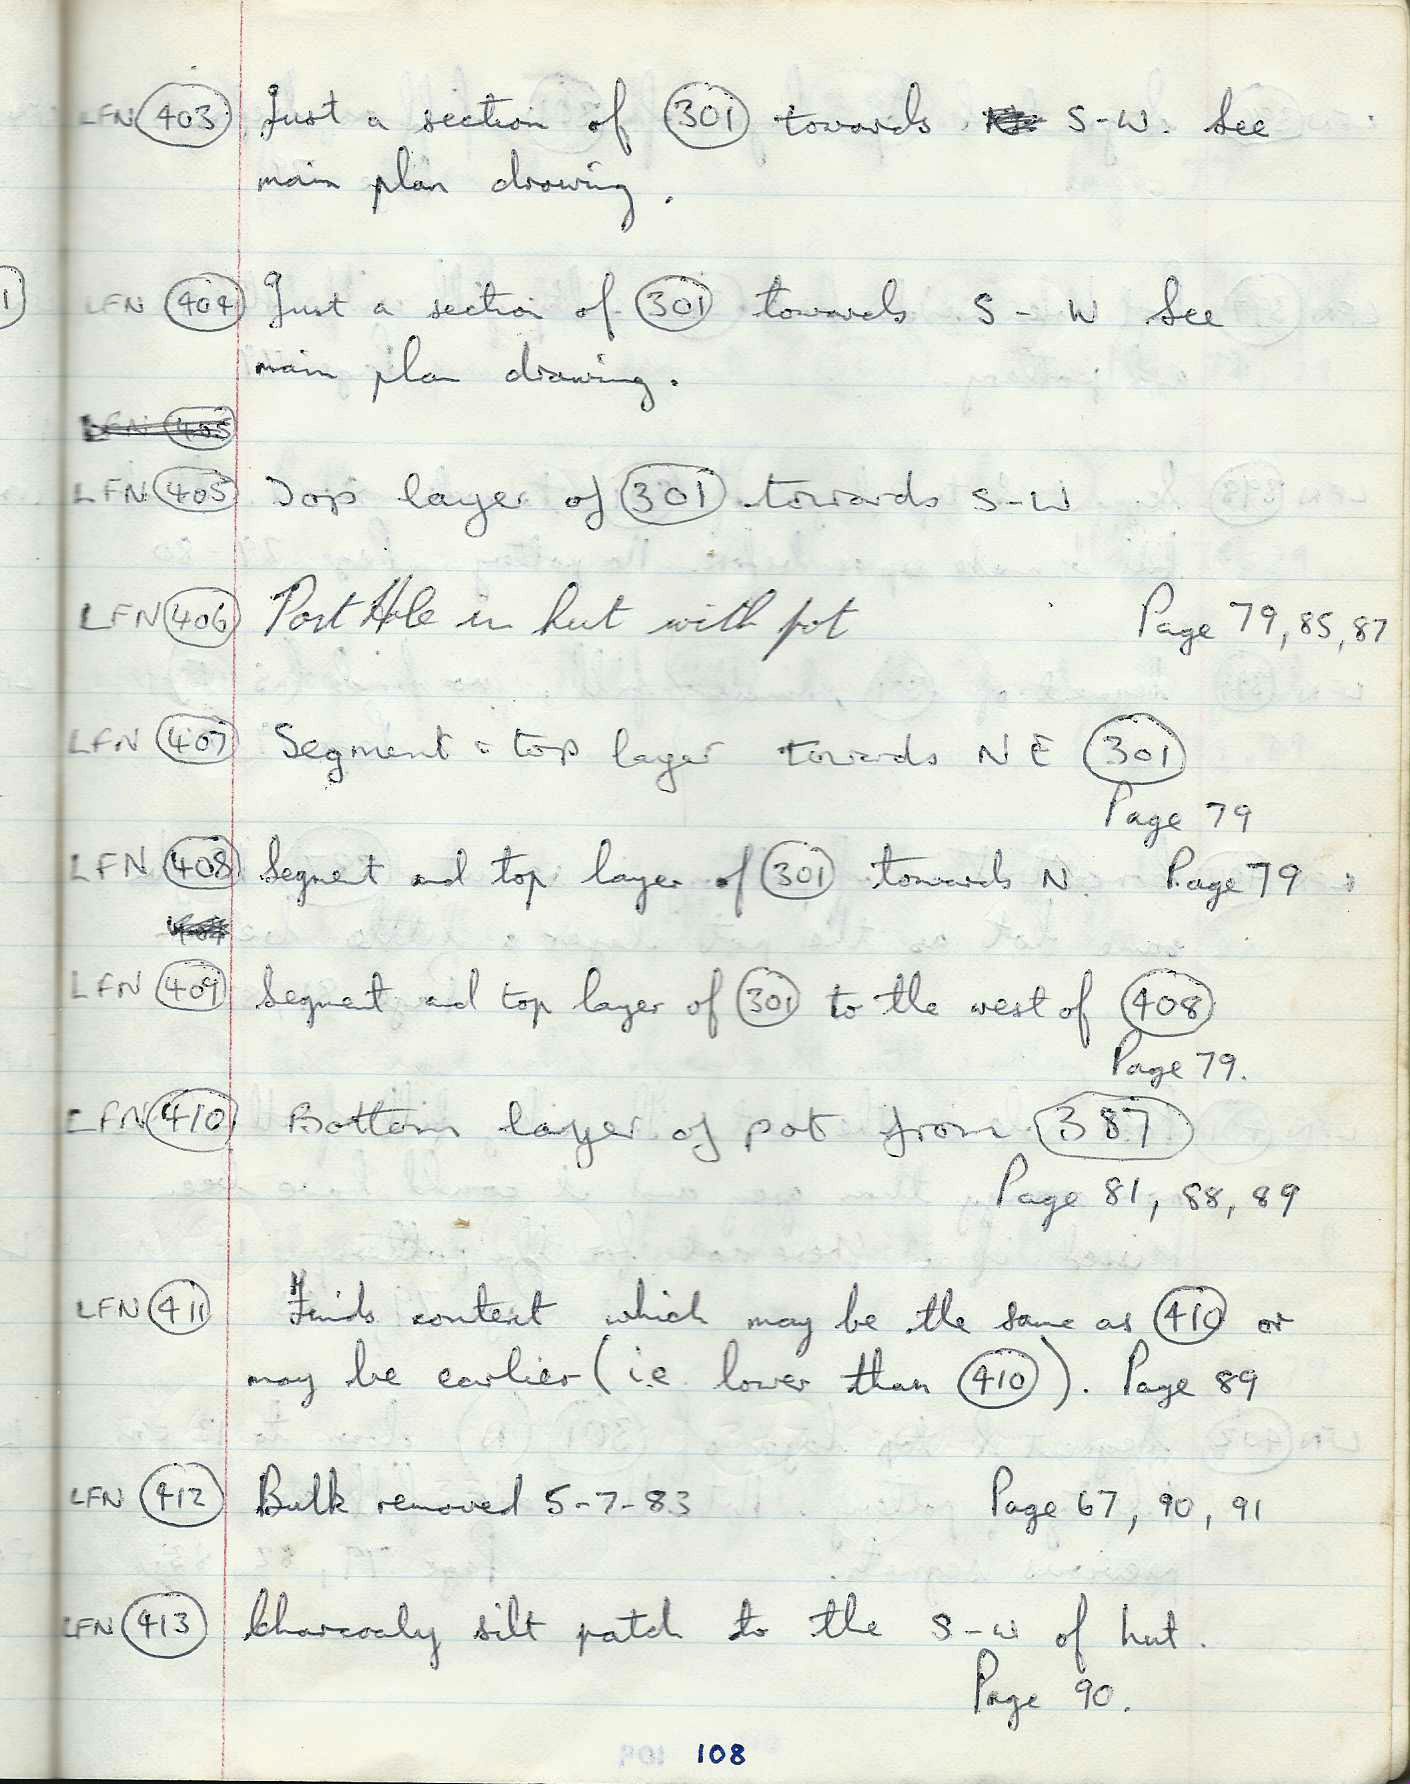 LFN 403 Just a section of 301 towards S-W. See
main plan drawing.
LFN 404 Just a section of 301 towards S-W See
main plan drawing.
LFN 405
LFN 405 Top layer of 301 towards S-W
LFN 406 Post Hole in hut with pot Page 79, 85, 87
LFN 407 Segment & top layer towards NE 301
Page 79
LFN 408 Segment and top layer of 301 towards N. Page 79
LFN 409 Segment and top layer of 301 to the west of 408
Page 79.
LFN 410 Bottom layer of pot from 387
Page 81, 88, 89
LFN 411 Finds context which may be the same as 410 or
may be earlier (i.e lower than 410). Page 89
LFN 412 Bulk removed 5-7-83 Page 67, 90, 91
LFN 413 Charcoaly silt patch to the S-W of hut.
Page 90.
108